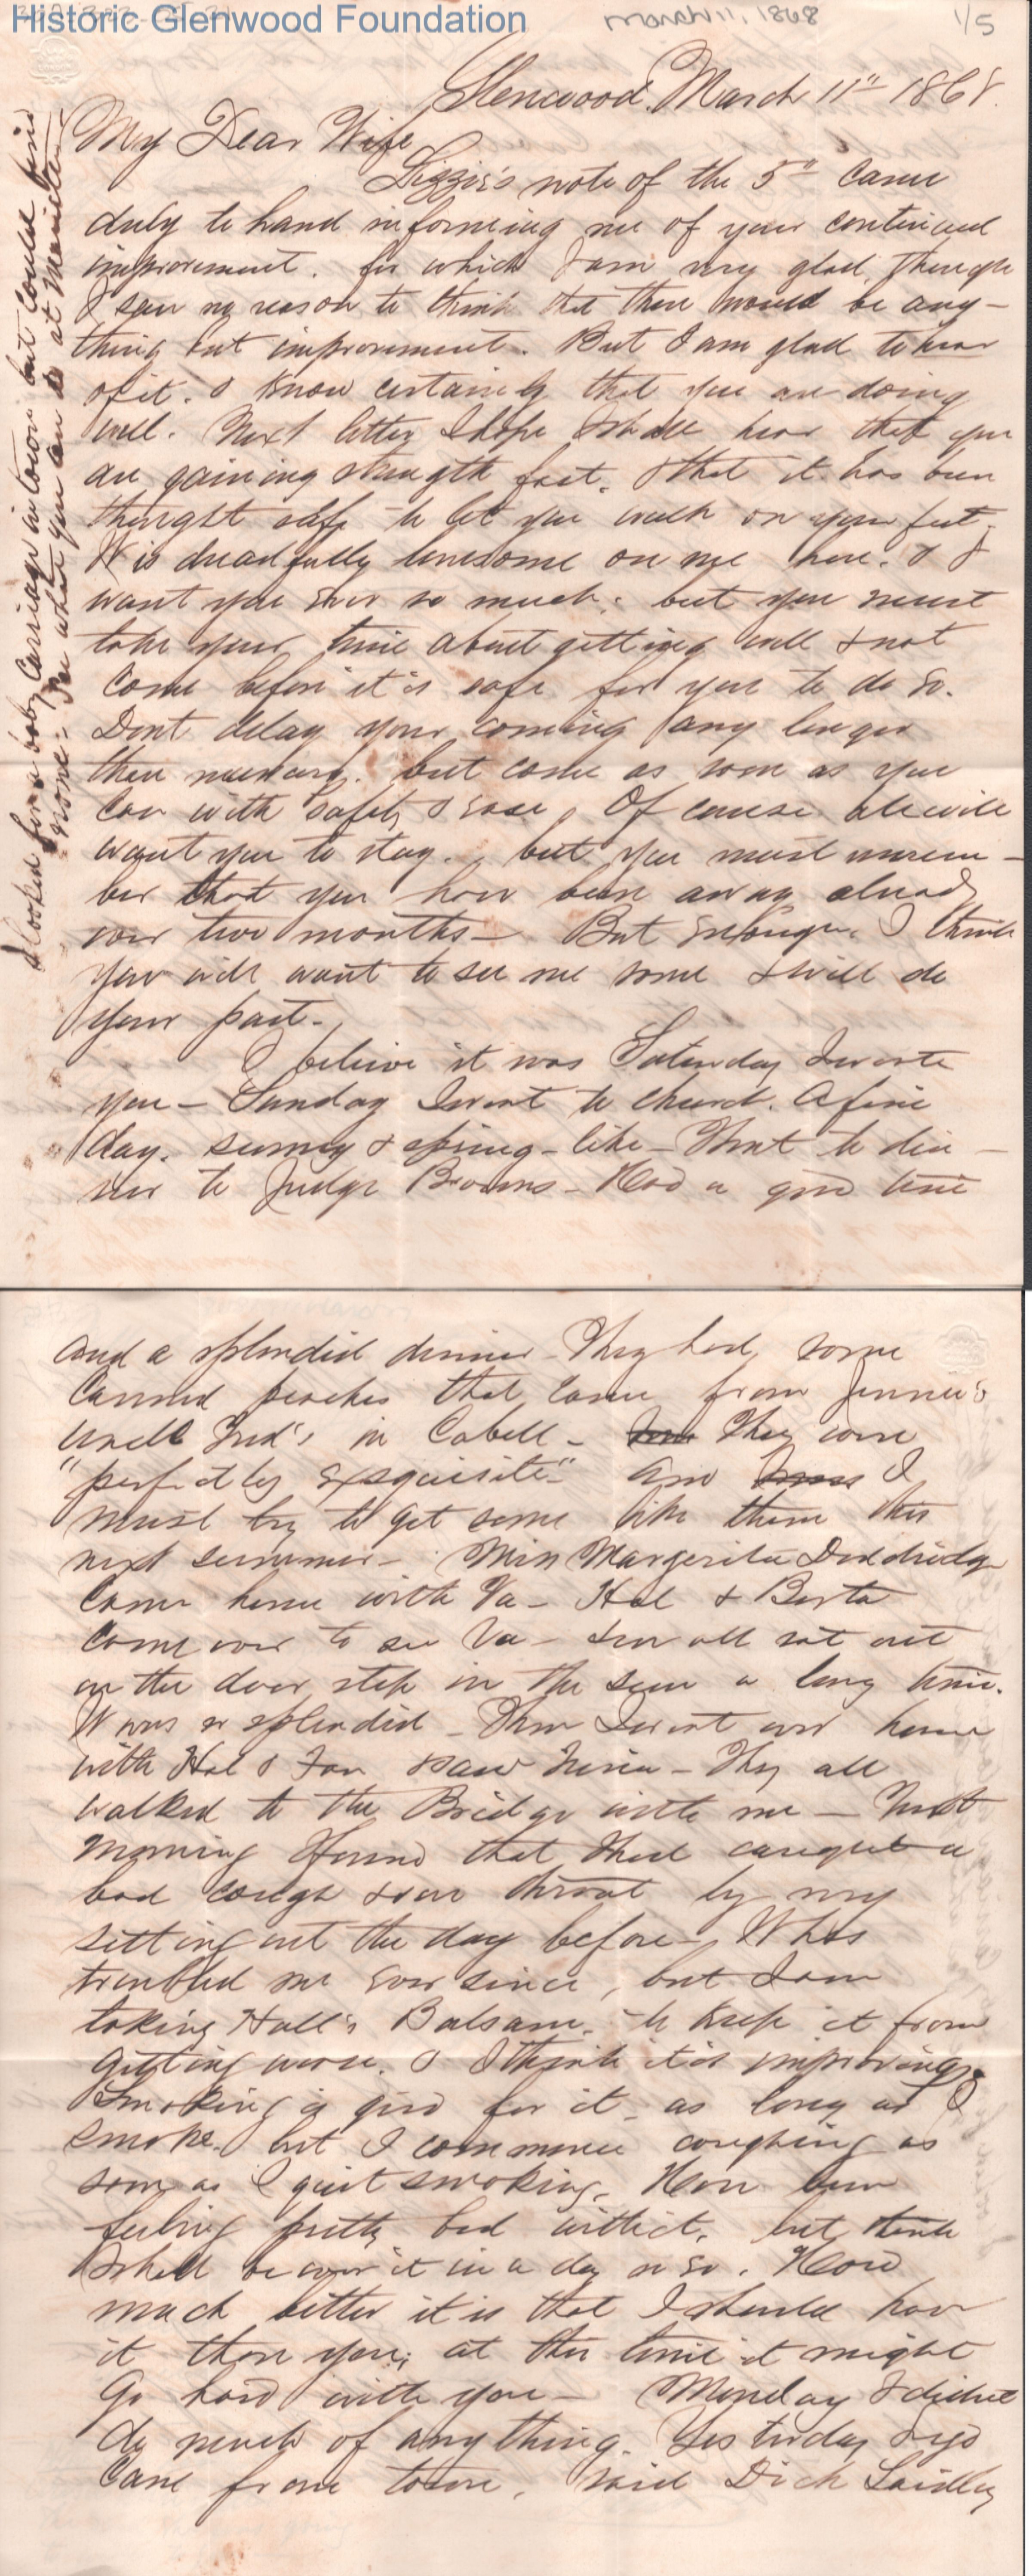 Historic Glenwood Foundation
March 11, 1868
1/5
Glenwood, March 11th 1868.
My Dear Wife
Lizzie's note of the 5th came
duly to hand informing me of your continued
improvement. for which I am very glad, though
I saw no reason to think that there would be any-
thing but improvement. But I am glad to hear
of it. I know certainly that you are doing
well. Next letter I hope I shall hear that you
are gaining strength fast. & that it has been
thought safe to let you walk on your feet.
It is dreadfully lonesome on me here. & I
want you ever so much: but you must
take your time about getting well & not
come before it is safe for you to do so.
Dont delay your coming any longer
than necessary. but come as soon as you
can with safety & ease. Of course all will
want you to stay. but you must
that you have been away already
over two months— But enough. I think
you will want to see me some & will do
your part.
I believe it was Saturday I wrote
you— Sunday I went to church. A fine
day. sunny & spring-like— Went to din-
ner to Judge Browns— Had a good time
I looked for a baby Carriage in town but could find
none— See what you can do at
and a splendid dinner— They had some
canned peaches that came from Jennie's
Uncle in Cabell— They were
"perfectly exquisite" and I
must try to get some like them this
next summer— Miss Margerita Doddridge
came home with Va— Hal & Berta
came over to see Va— & we all sat out
on the door step in the sun a long time.
It was so splendid— Then I went over home
with Hal & saw — They all
walked to the Bridge with me— Next
morning I found that I had caught a
bad cough & sore throat by my
sitting out the day before— It has
troubled me ever since, but I am
taking Hall's Balsam. to keep it from
getting worse. & I think it is improving.
Smoking is good for it— as long as I
smoke. but I commence coughing as
soon as I quit smoking. Have been
feeling pretty bad with it. but think
I shall be over it in a day or so. How
much better it is that I should have
it than you; at this time it might
Go hard with you— Monday I didnt
do much of anything. Yesterday
came from town, said Dick Laidley